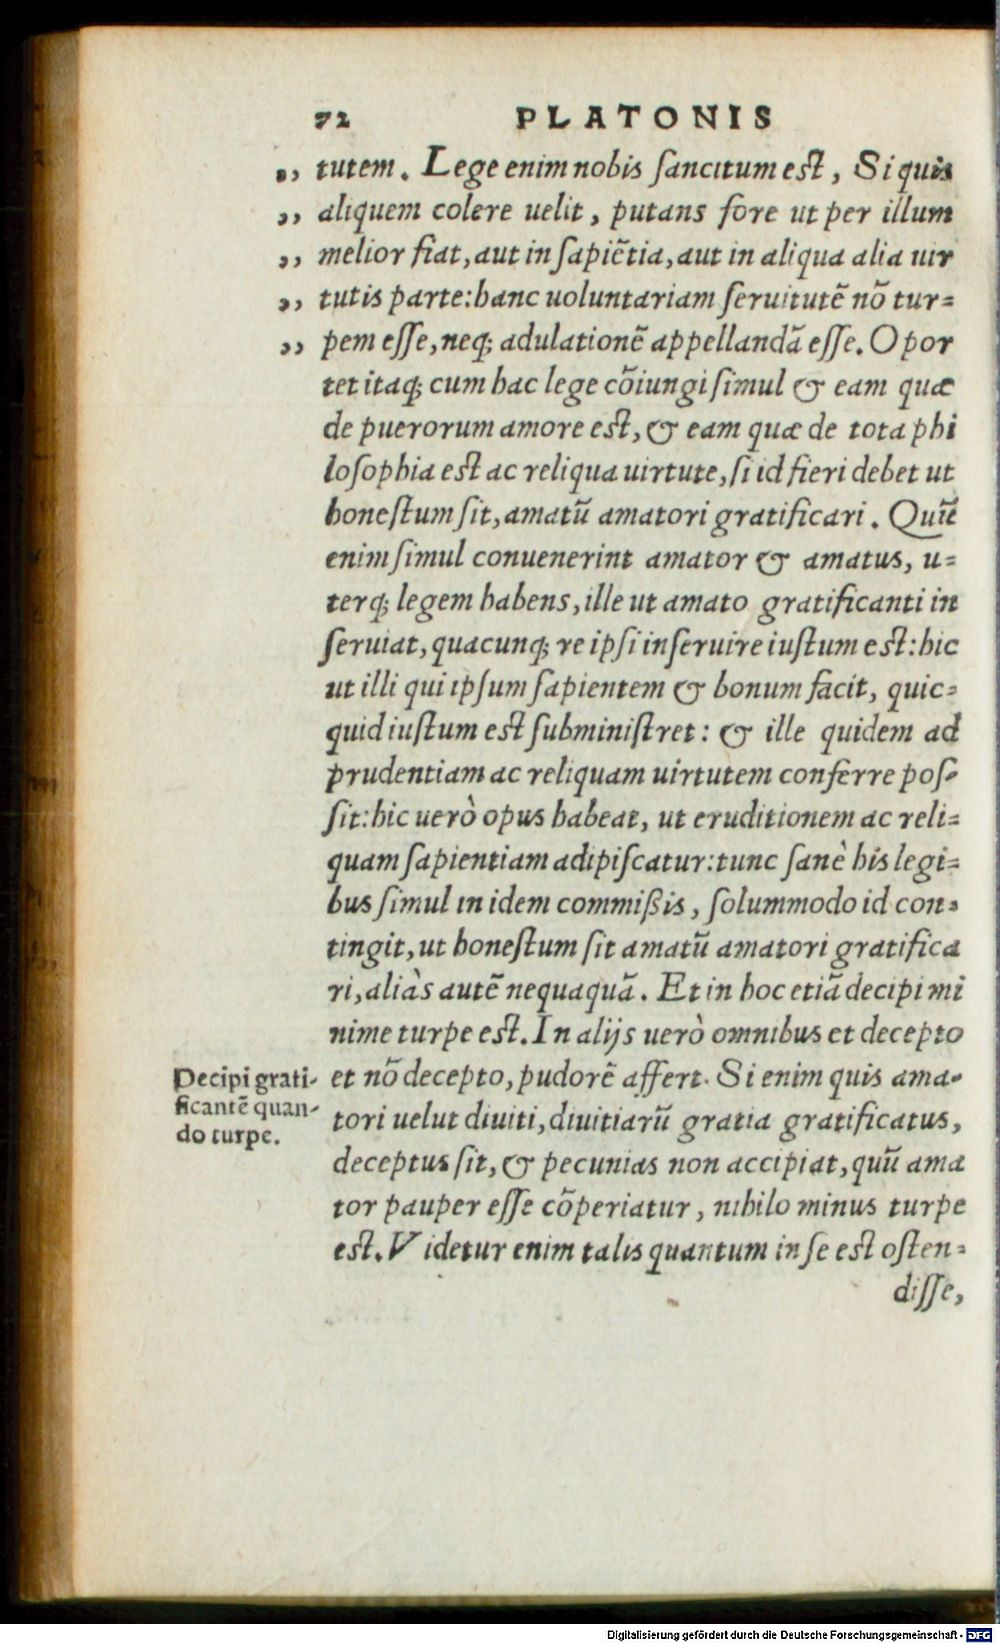 72 PLATONIS
„ tutem. Lege enim nobis ſancitum eſt, Si quis
„ aliquem colere uelit, putans fore ut per illum
„ melior fiat, aut in ſapiẽtia, aut in aliqua alia uir
„ tutis parte: hanc uoluntariam ſeruitutẽ nõ tur=
„ pem eſſe, neq; adulationẽ appellandã eſſe. Opor
tet itaq; cum hac lege cõiungi ſimul & eam quæ
de puerorum amore eſt, & eam quæ de tota phi
loſophia eſt ac reliqua uirtute, ſi id fieri debet ut
honeſtum ſit, amatũ amatori gratificari. Quũ
enim ſimul conuenerint amator & amatus, u=
terq; legem habens, ille ut amato gratificanti in
ſeruiat, quacunq; re ipſi inſeruire iuſtum eſt: hic
ut illi qui ipſum ſapientem & bonum facit, quic=
quid iuſtum eſt ſubminiſtret: & ille quidem ad
prudentiam ac reliquam uirtutem conferre poſ=
ſit: hic uerò opus habeat, ut eruditionem ac reli=
quam ſapientiam adipiſcatur: tunc ſanè his legi=
bus ſimul in idem commißis, ſolummodo id con=
tingit, ut honeſtum ſit amatũ amatori gratifica
ri, aliàs autẽ nequaquã. Et in hoc etiã decipi mi
nime turpe eſt. In alijs uerò omnibus et decepto
et nõ decepto, pudorẽ affert. Si enim quis ama=
Decipi grati-
ficantẽ quan-
do turpe.
tori uelut diuiti, diuitiarũ gratia gratificatus,
deceptus ſit, & pecunias non accipiat, quũ ama
tor pauper eſſe cõperiatur, nihilo minus turpe
eſt. Videtur enim talis quantum in ſe eſt oſten=
diſſe,
Digitalisierung gefördert durch die Deutsche Forschungsgemeinschaft - DFG